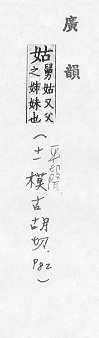 廣韻
姑
舅姑又父
之姊妹也
(十一模古胡切.
P82)